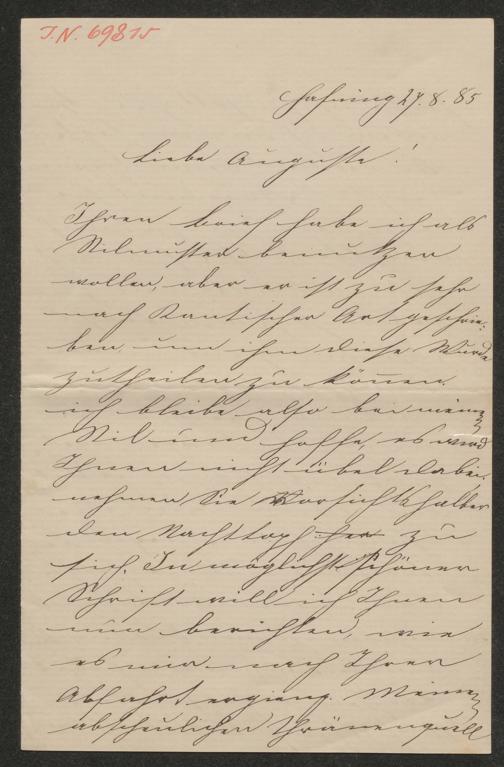 J.N. 69815
Hafning 27.8.85
Liebe Auguste!
Ihren Brief habe ich als
Stilmuster benutzen
wollen, aber er ist zu sehr
nach Kantischer Art geschrie-
ben, um ihm diese Würde
zutheilen zu können.
ich bleibe also bei meinem
Stil und hoffe, es wird
Ihnen nicht übel dabei.
nehmen Sie Vorsichtshalber
den Nachttopf her zu
sich. In möglichst schöner
Schrift will ich Ihnen
nun berichten, wie
es mir nach Ihrer
Abfahrt erging. Meinen
abscheulichen Thränenquell